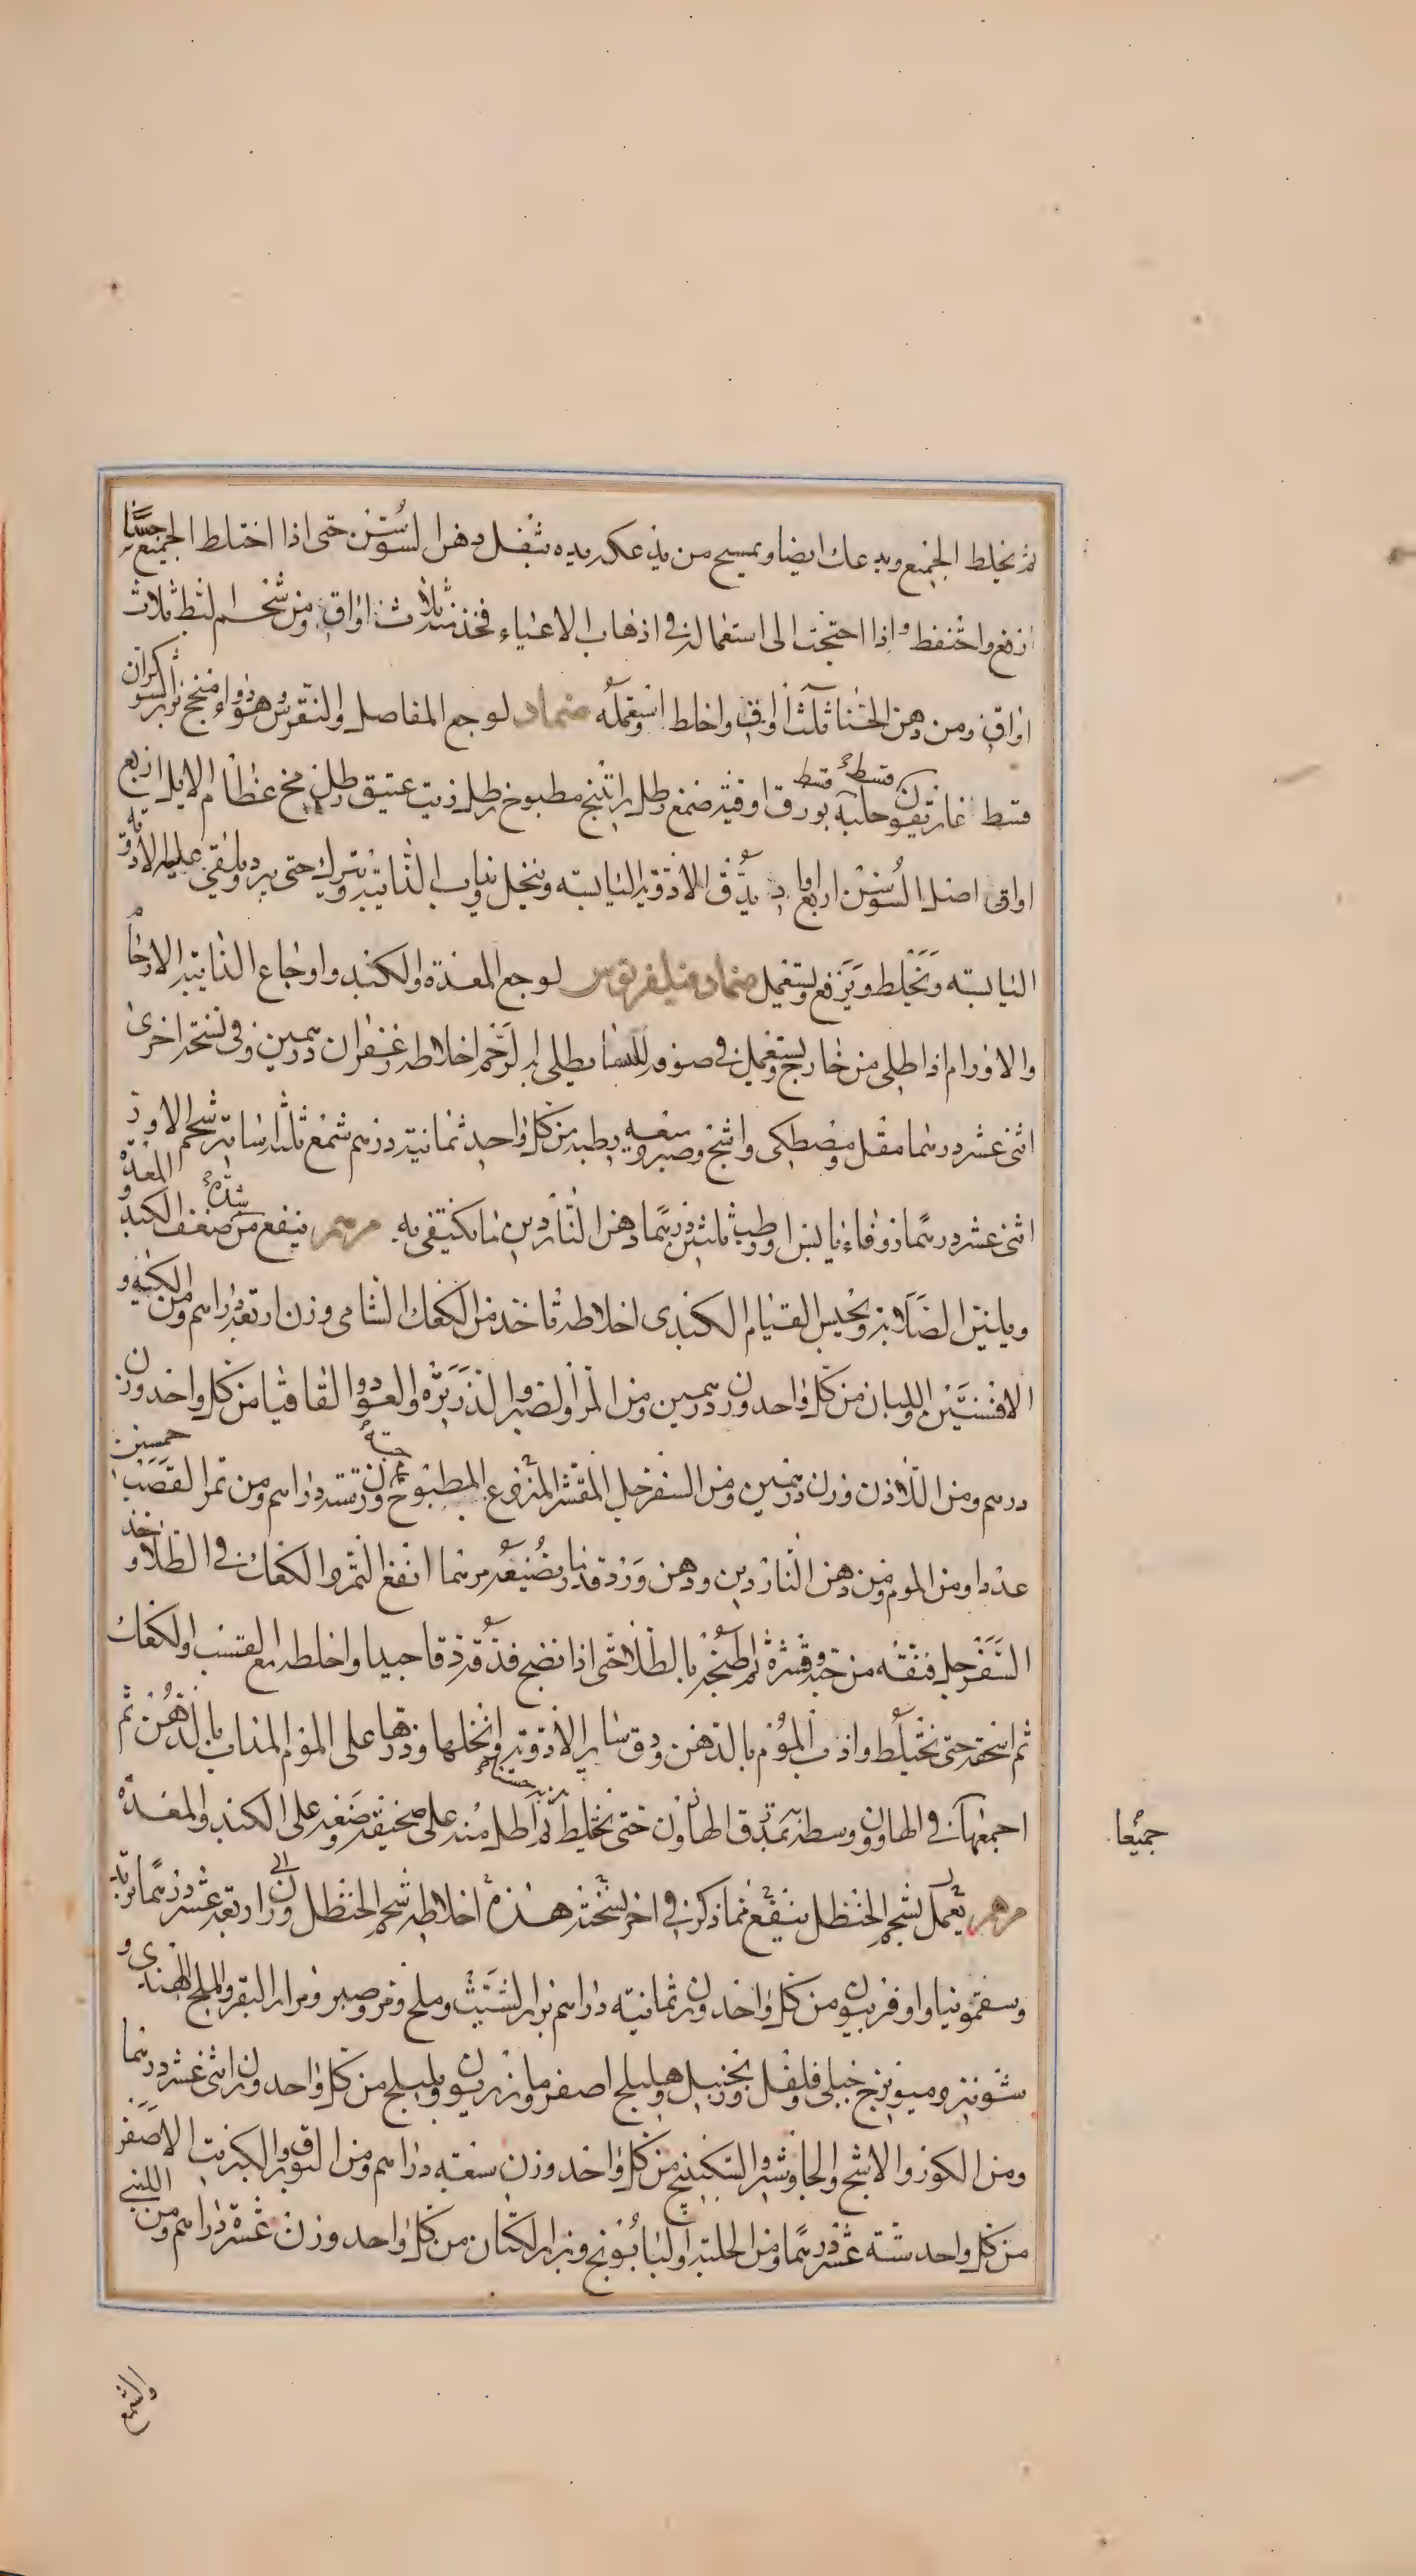 ثم يخلط الجميع ويدعك ايضا ويمسح من يدعكه يده بثفل دهن السوسن حتى اذا اختلط الجميع حسنا
ارفع واحتفظ واذا احتجت الى استعماله في اذهاب الاعياء فخذ منه ثلاث اواق ومن شحم البط ثلاث
اواق ومن دهن الحنا ثلث اواق واخلط استعمله ضماد لوجع المفاصل والنقرس وهو دواء منجح بزر السوكران
قسط غاريقون قسط حلبه قسط بورق اوقيه صمغ رطل راتينج مطبوخ رطل زيت عتيق رطل مخ عظام الايل اربع
اواقى اصل السوسن اربع اواق يدق الادويه اليابسه وينخل يذاب الذايبه ويترك حتى يبرد ويلقى عليه الادويه
اليابسه ويخلط ويرفع ويستعمل ضماد فيلغريوس لوجع المعدة والكبد واوجاع الذايبه الارحام
والاورام اذا اطلى من خارج ويستعمل في صوفه للنساء يطلى به الرحم اخلاطه زعفران درهمين وفي نسخه اخرى
اثنى عشر درهما مقل ومصطكى واشج وصبر وميعه رطبه من كل واحد ثمانية درهم شمع ثلثه اساتير شحم الاوز
اثنى عشر درهما زوفاء يابس او رطب ثلثين درهما دهن الناردين ما يكتفى به مرهم ينفع من ضعف الكبد شدة المعدة و
ويلين الصلابه ويحبس القيام الكبدى اخلاطه تاخذ من الكعك الشامى وزن اربعه دراهم ومن الكيه و
الافسنتين واللبان من كل واحد وزن درهمين ومن المر والصبر والذريره والعود والقاقيا من كل واحد وزن
درهم ومن اللاذن وزن درهمين ومن السفرجل المقشر المنزوع حبه المطبوخ وزن ستة دراهم ومن تمر القصب خمسين
عددا ومن الموم ومن دهن الناردين ودهن ورد قدنا ويضيعه مرهما انفع التمر والكعك في الطلا وخذ
السفرجل فنقه من حبه وقشره ثم اطبخه بالطلا حتى اذا نضج فدقه دقا جيدا واخلطه مع القسب والكعك
ثم اسحقه حتى يختلط واذب الموم بالدهن ودق سائر الادوية وانخلها وذرها على الموم المذاب بالدهن ثم
اجمعها في الهاون ووسطه بمدق الهاون حتى يختلط مزيد حسنا ثم اطل منه على صحيفة وضعه على الكبد والمعدة
جميعا
مرهم يعمل بشحم الحنظل ينفع مما ذكر في اخر نسخته هذه اخلاطه شحم الحنظل وزن اربعه عشر درهما تربد
وسقمونيا واوفربيون من كل واحد وزن ثمانيه دراهم بزر الشبث وملح ومر وصبر ومرار البقر والملح الهندى و
شونيز وميويزج جبلى فلفل وزنجبيل وهليلج اصفر ومازريون وبليلج من كل واحد وزن اثنى عشر درهما
ومن الكور والاشج والجاوشير والسكبينج من كل واحد وزن سبعه دراهم ومن البورق والكبريت الاصفر
من كل واحد ستة عشر درهما ومن الحلبة والبابونج وبزر الكتان من كل واحد وزن عشرة دراهم ومن اللبنى
والشمع